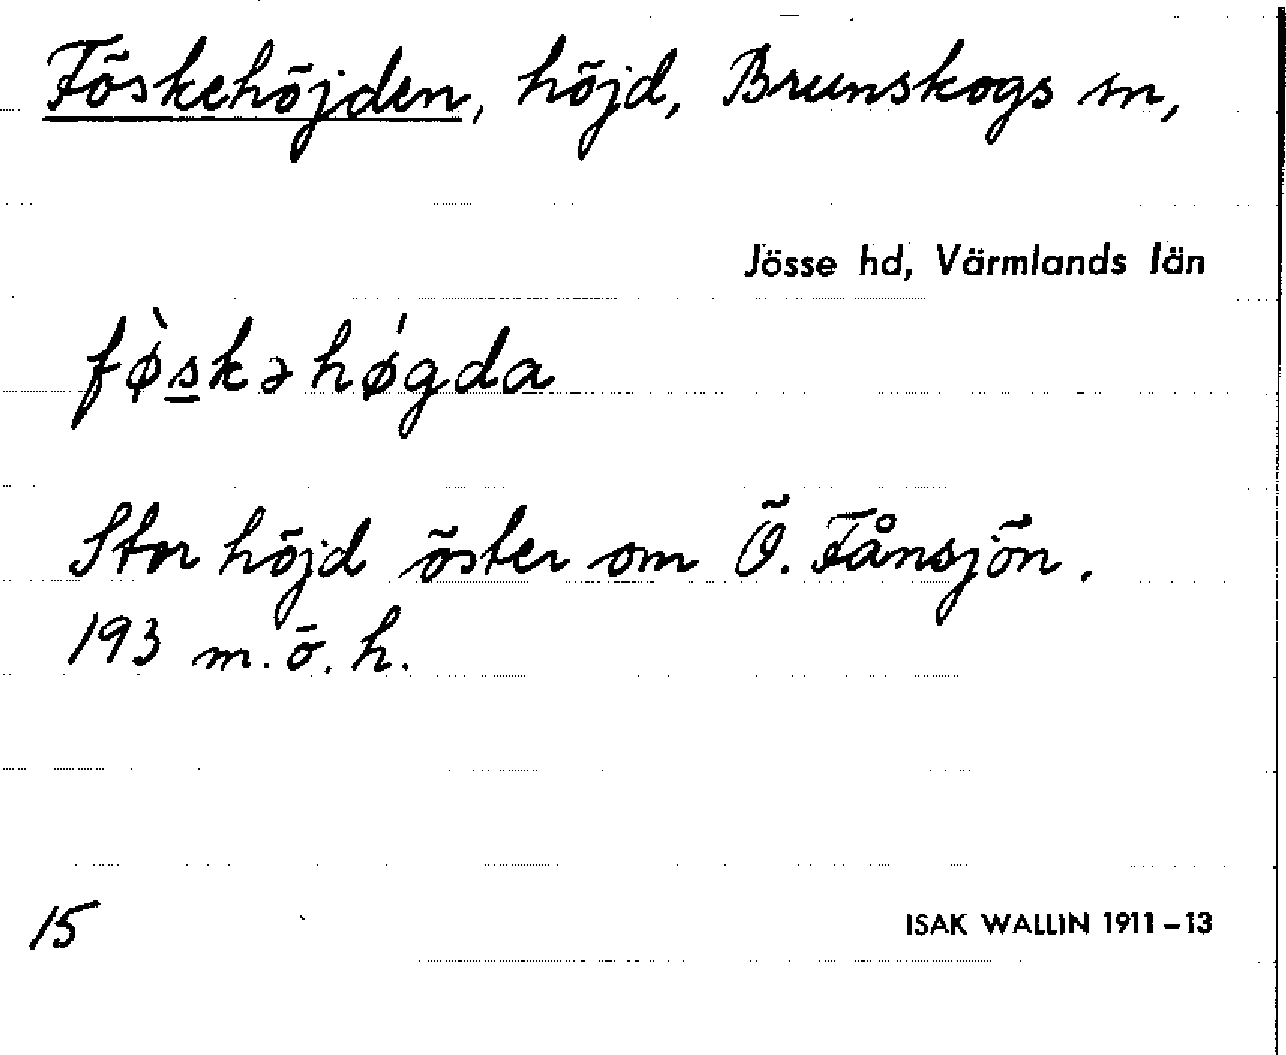 Föskehöjden, höjd, Brunskogs sn,
Jösse hd, Värmlands län
fø̀s̲kəhǿgda
Stor höjd öster om Ö. Fånsjön.
193 m.ö.h.
15
ISAK WALLIN 1911–13